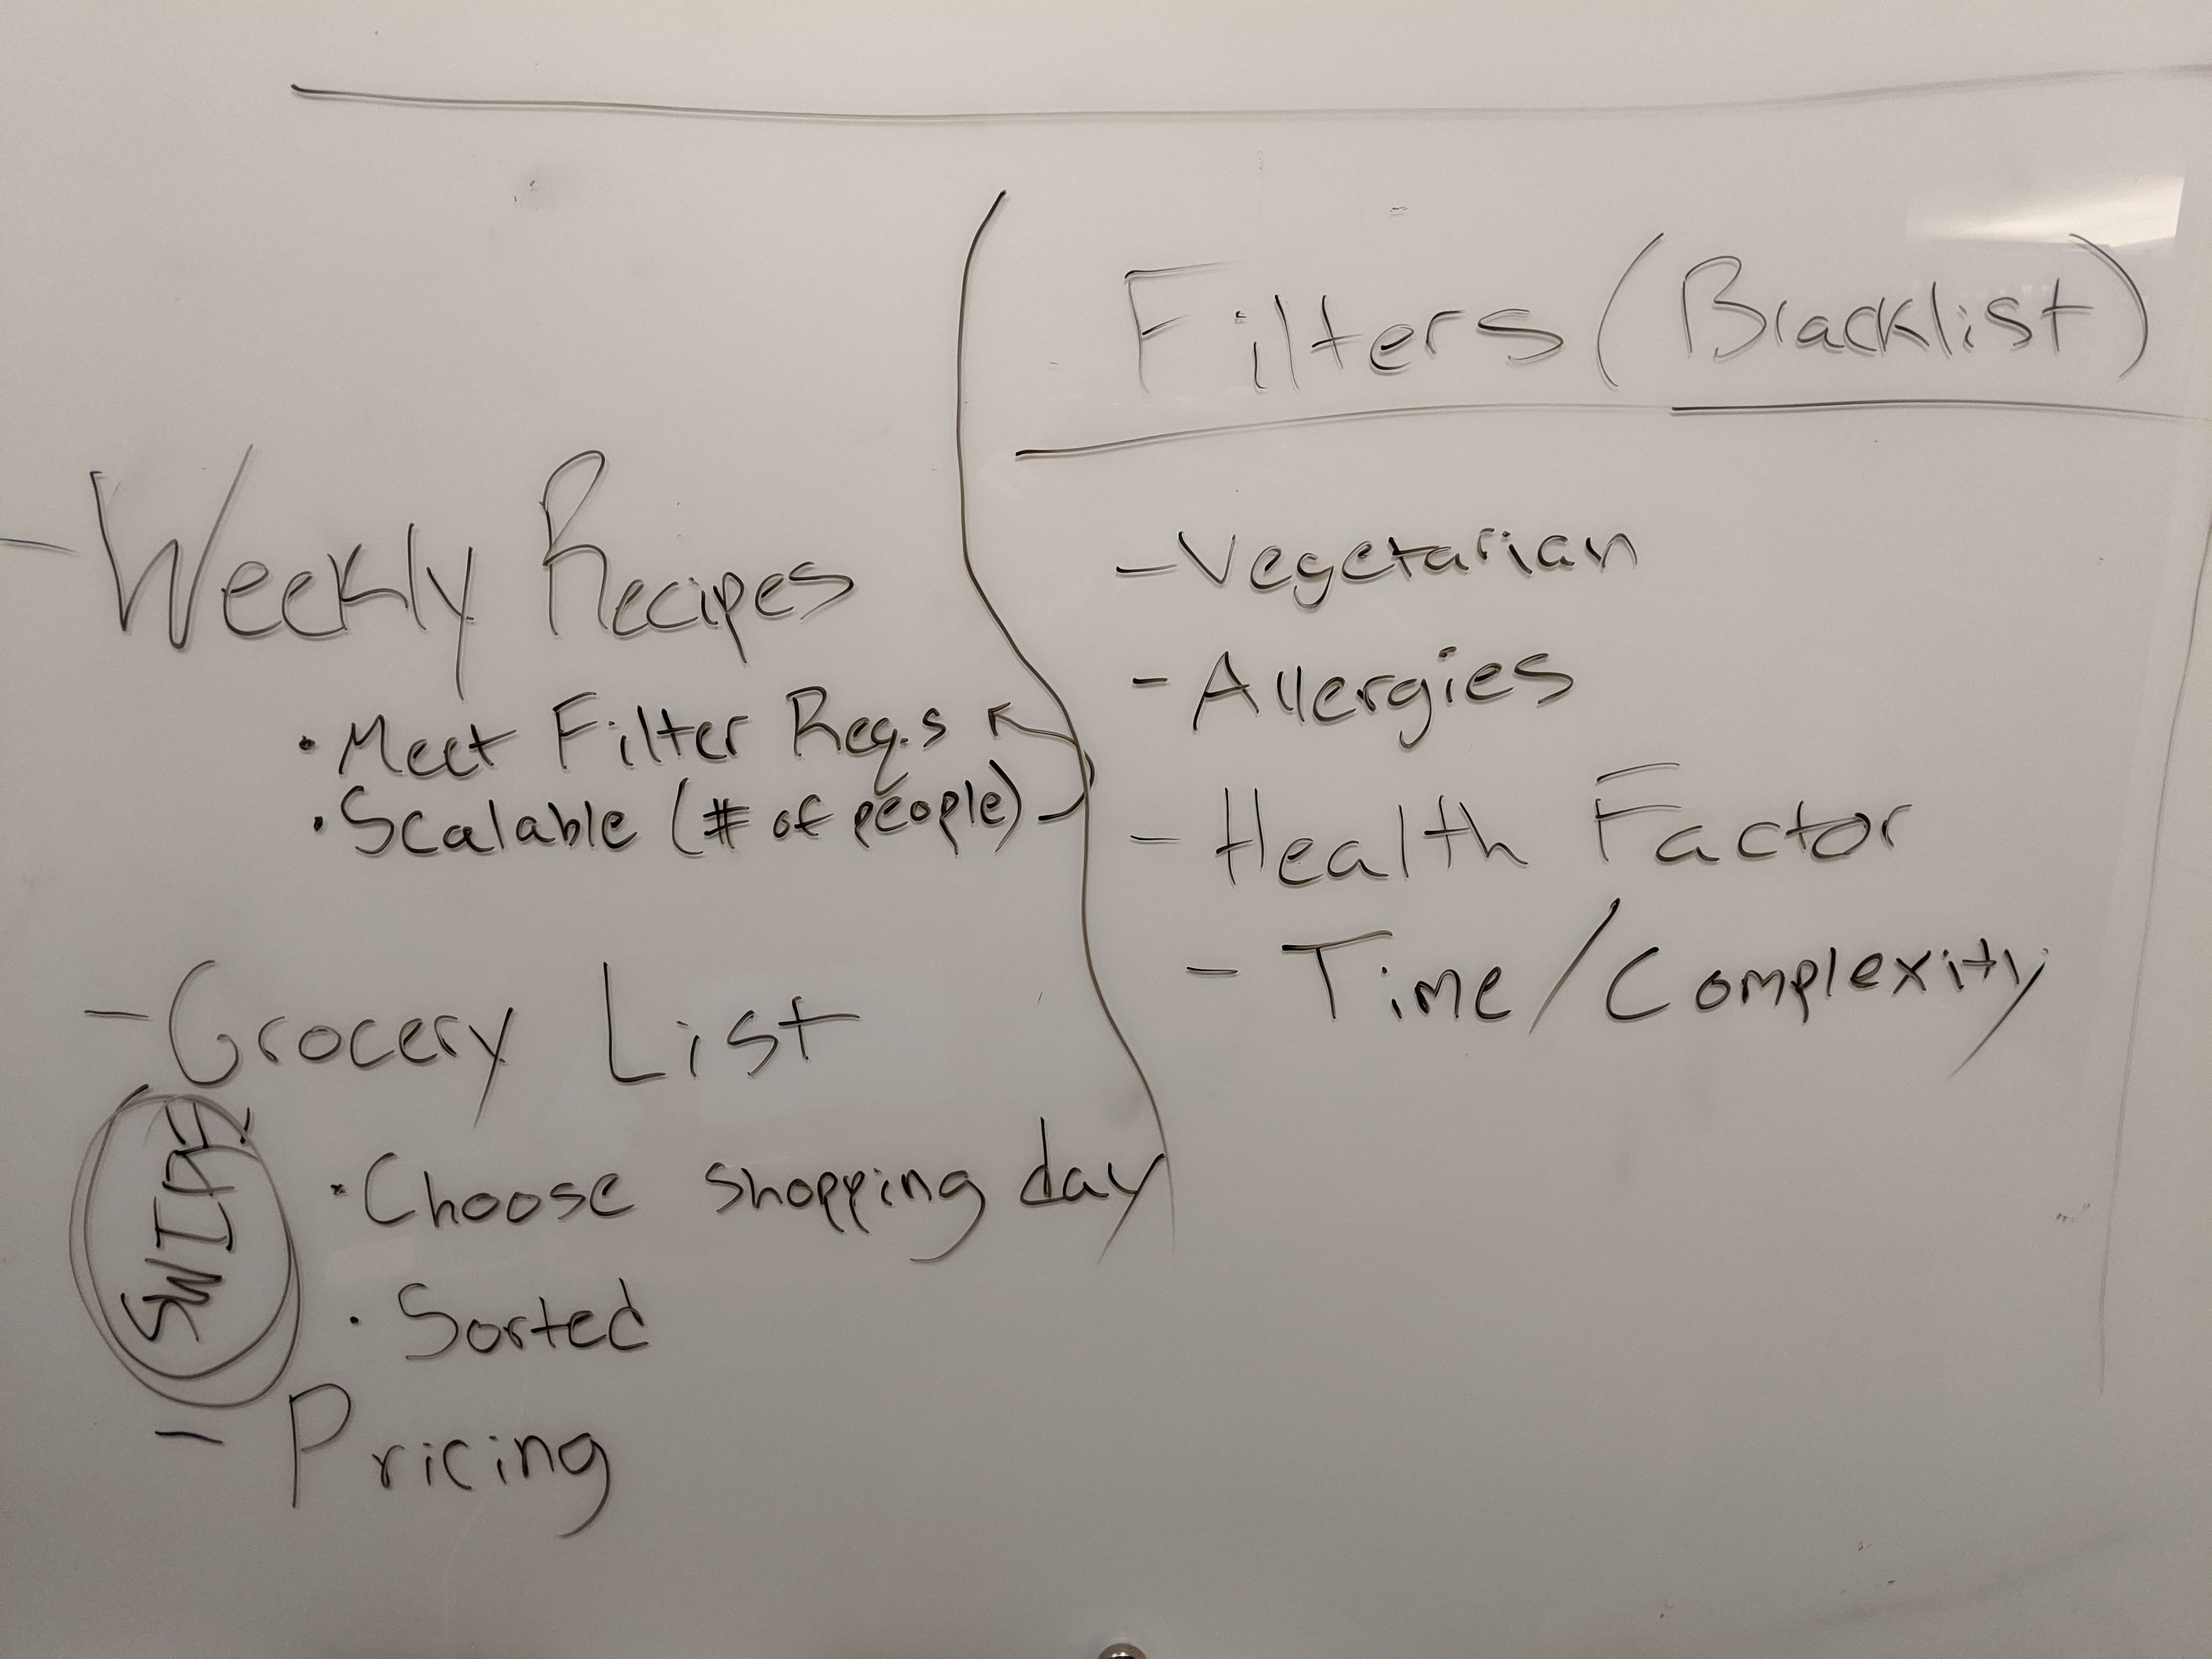 - Weekly Recipes
• Meet Filter Req.s
• Scalable (# of people)
- Grocery List
• Choose shopping day
• Sorted
- Pricing
SWIPE
Filters (Blacklist)
- Vegetarian
- Allergies
- Health Factor
- Time/Complexity